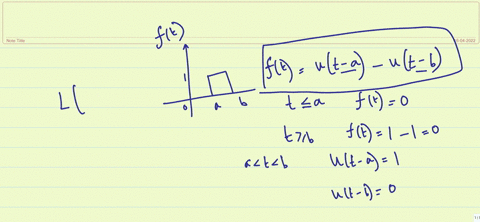 f(t)
f(t) = u(t-a) - u(t-b)
L(
1
0 a b
t ≤ a f(t) = 0
t ≥ b f(t) = 1 - 1 = 0
a < t < b u(t-a) = 1
u(t-b) = 0
Note Title